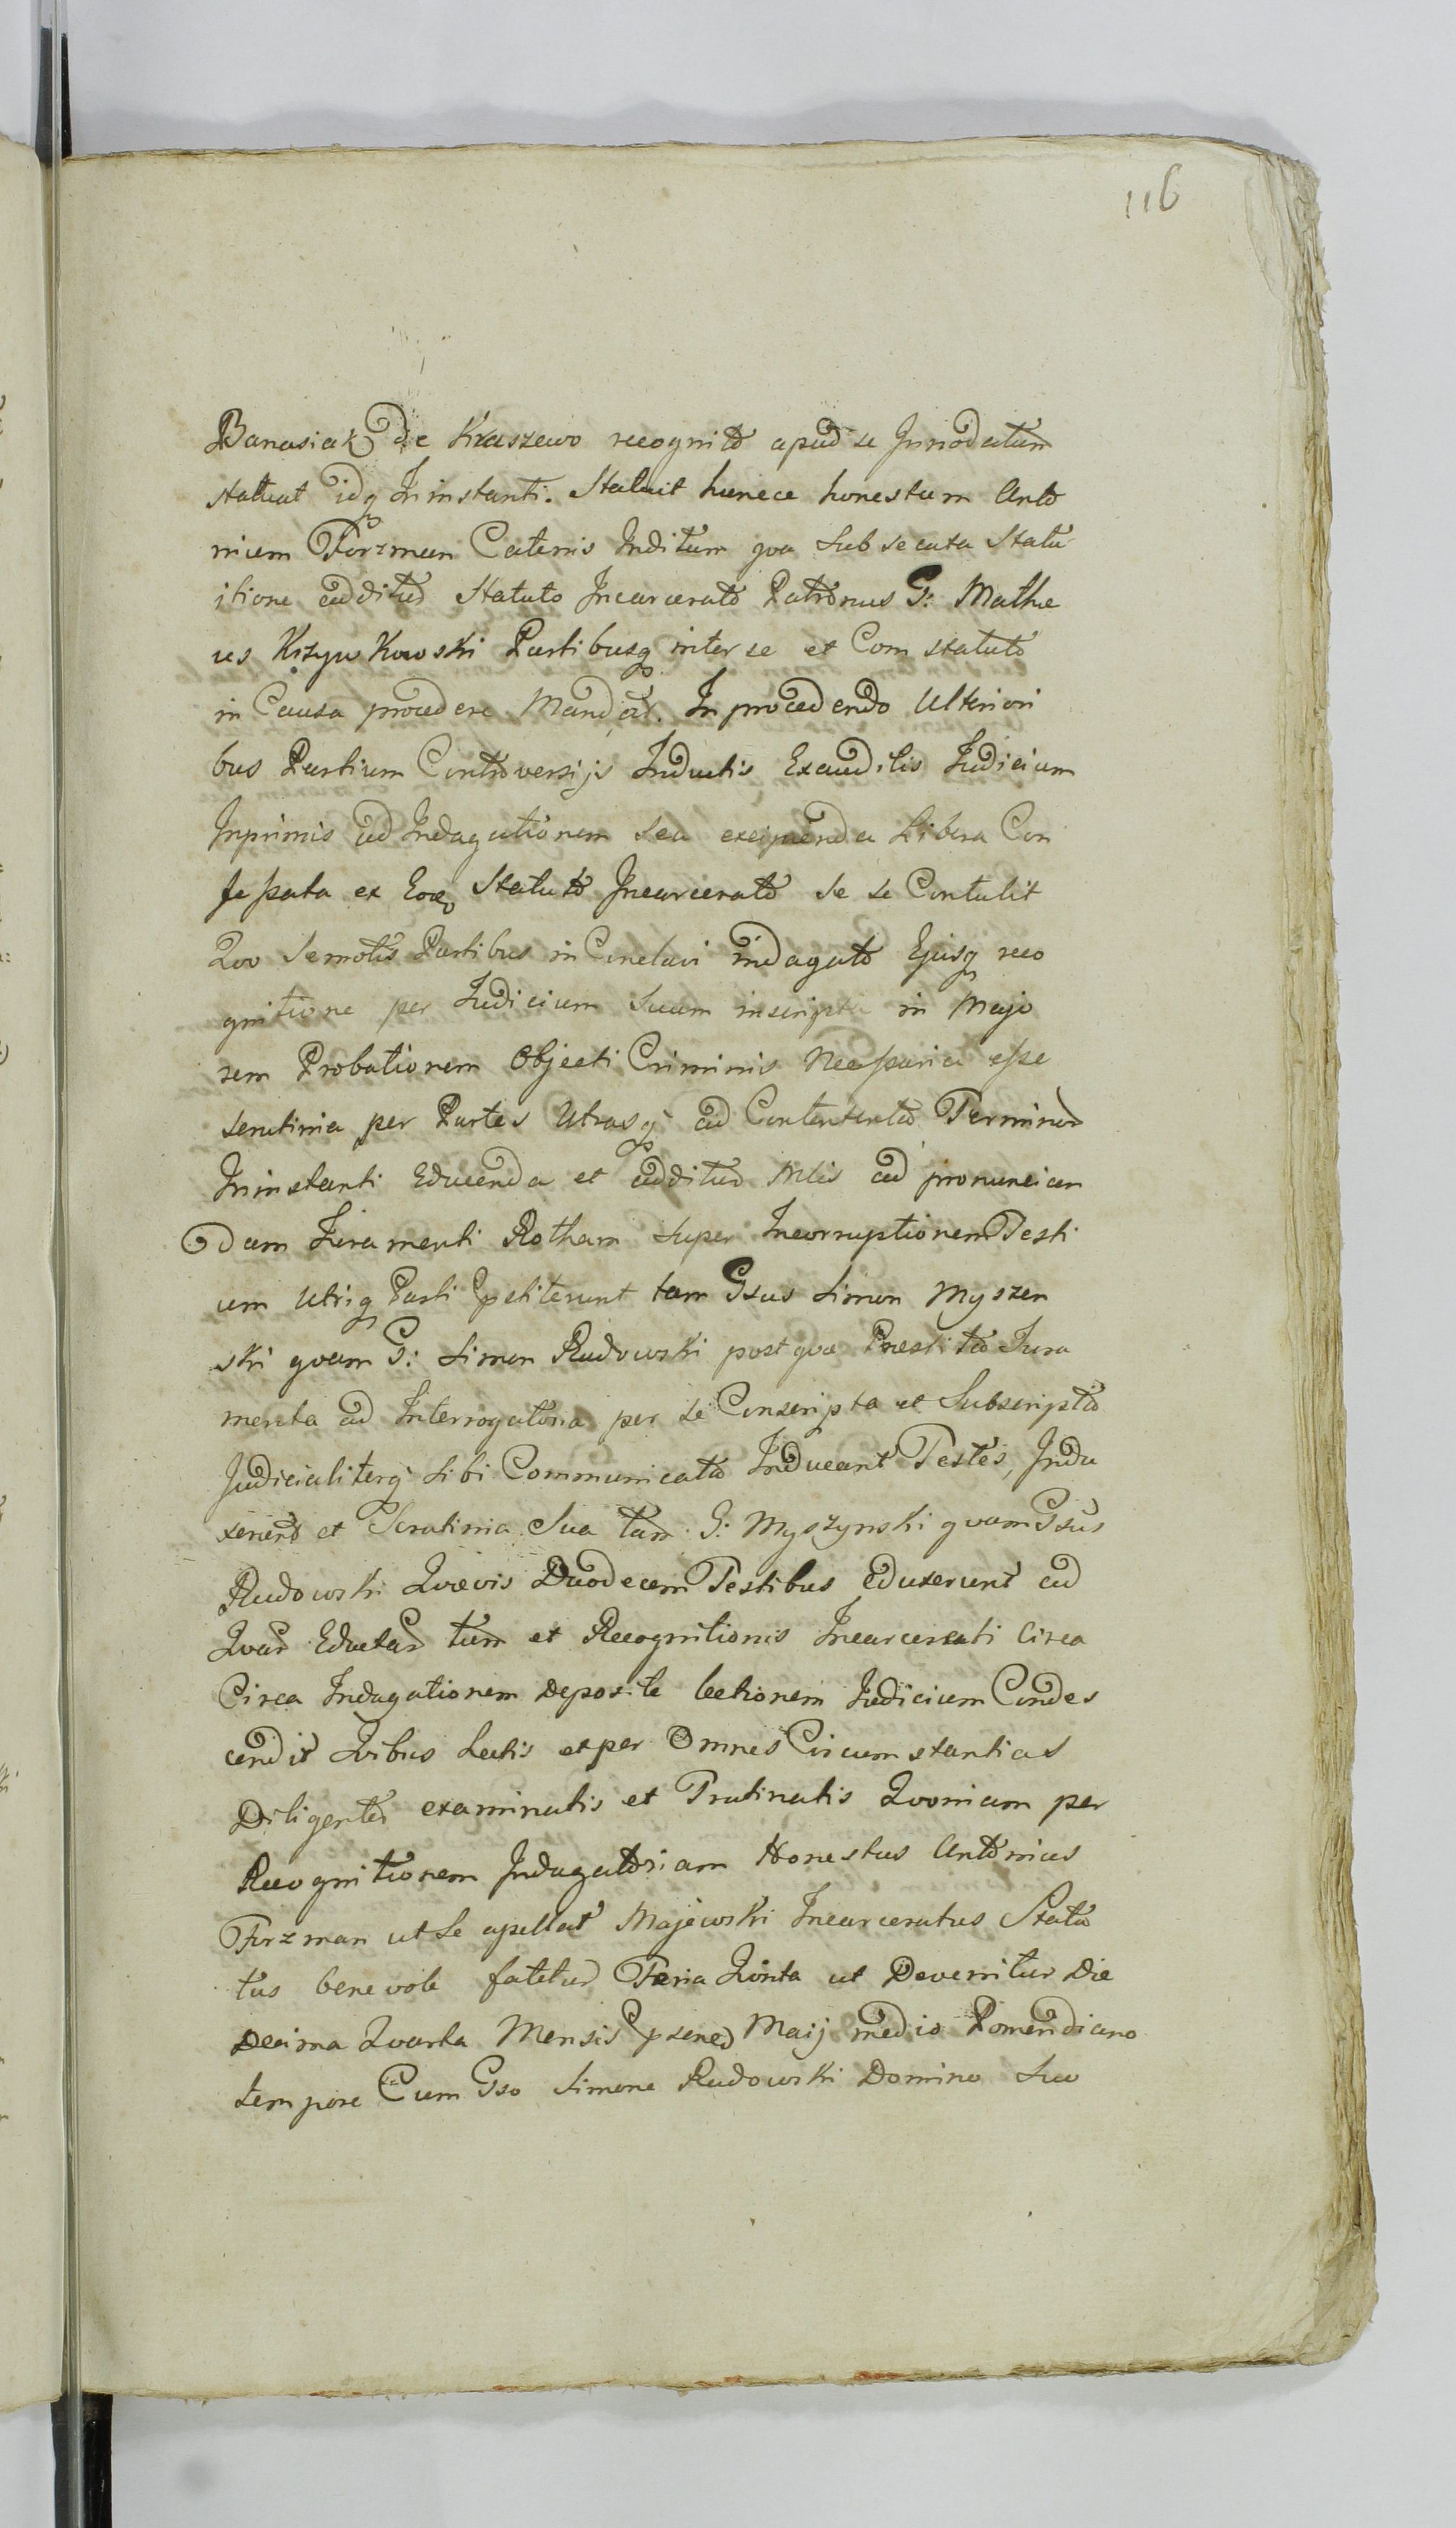 116
Banasiak de Kraszewo recognito apud se Innodatum
statuat idq Ininstanti. Statuit hunece honestum Anto
nium Forzman Catenis Inditum qua Subsecuta Statu
itione additus Statuto Incarcerato Patronus G: Mathe
us Krzywkowski Partibusq inter se et Com statuto
in Causa procedere Mandat. In procedendo Ulteriori
bus Partium Controversijs Inductis Exauditis Judicium
Inprimis ad Indagationem seu excipienda Libera Con
fessata ex Eoq Statuto Incarcerato se se Contulit
Quo Semotis Partibus in Conclavi indagato Ejusq reco
gnitione per Judicium Suum inscripta in Majo
rem Probationem Objecti Criminis Necessaria esse
scrutinia per Partes Utrasq ad Contenta Terminus
Ininstanti Educenda et additus Mlis ad pronuncian
dam Juramenti Rotham super Incorruptionem Testi
um Utriq Parti petiterunt tam Gsus Simon Myszen
ski quam G: Simon Rudowski post qua Præstita Jura
menta ad Interrogatoria per se Conscripta et Subscripta
Judicialiterq sibi Communicata Inducant Testes, Indu
xerunt et Scrutinia Sua tam G: Myszynski quam Gsus
Rudowski Quævis Duodecem Testibus eduxerunt ad
Quar Eductar tum et Recognitionis Incarcerati Circa
Circa Indagationem Deposite lectionem Judicium Condes
cendit Quibus Lectis et per Omnes Circumstantias
Diligenter examinatis et Trutinatis Quoniam per
Recognitionem Indagatoriam Honestus Antonius
Forzman ut se apellat Majewski Incarceratus Statu
tus benevole fatetur Feria Quinta ut Devenitur Die
Decima Quarta Mensis psened Maij medio Pomeridiano
tempore Cum Gso Simone Rudowski Domino Suo